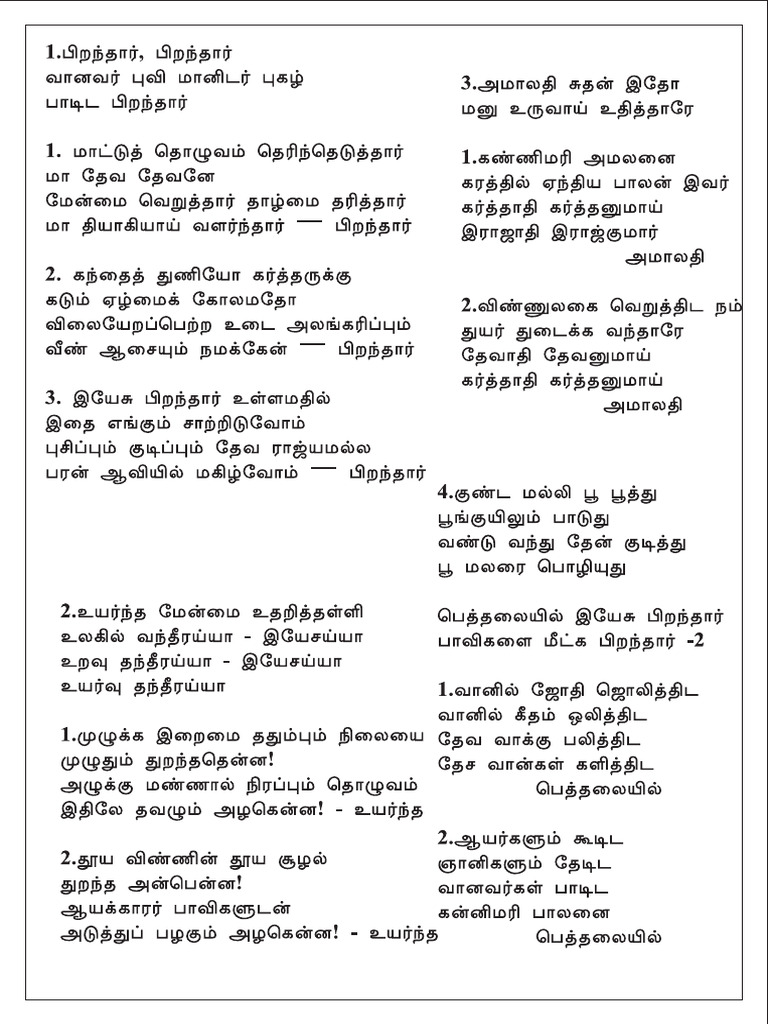 1.பிறந்தார், பிறந்தார்
வானவர் புவி மானிடர் புகழ்
பாடிட பிறந்தார்
1. மாட்டுத் தொழுவம் தெரிந்தெடுத்தார்
மா தேவ தேவனே
மேன்மை வெறுத்தார் தாழ்மை தரித்தார்
மா தியாகியாய் வளர்ந்தார் — பிறந்தார்
2. கந்தைத் துணியோ கர்த்தருக்கு
கடும் ஏழ்மைக் கோலமதோ
விலையேறப்பெற்ற உடை அலங்கரிப்பும்
வீண் ஆசையும் நமக்கேன் — பிறந்தார்
3. இயேசு பிறந்தார் உள்ளமதில்
இதை எங்கும் சாற்றிடுவோம்
புசிப்பும் குடிப்பும் தேவ ராஜ்யமல்ல
பரன் ஆவியில் மகிழ்வோம் — பிறந்தார்
2.உயர்ந்த மேன்மை உதறித்தள்ளி
உலகில் வந்தீரய்யா - இயேசய்யா
உறவு தந்தீரய்யா - இயேசய்யா
உயர்வு தந்தீரய்யா
1.முழுக்க இறைமை ததும்பும் நிலையை
முழுதும் துறந்ததென்ன!
அழுக்கு மண்ணால் நிரப்பும் தொழுவம்
இதிலே தவழும் அழகென்ன! - உயர்ந்த
2.தூய விண்ணின் தூய சூழல்
துறந்த அன்பென்ன!
ஆயக்காரர் பாவிகளுடன்
அடுத்துப் பழகும் அழகென்ன! - உயர்ந்த
3.அமாலதி சுதன் இதோ
மனு உருவாய் உதித்தாரே
1.கண்ணிமரி அமலனை
கரத்தில் ஏந்திய பாலன் இவர்
கர்த்தாதி கர்த்தனுமாய்
இராஜாதி இராஜ்குமார்
அமாலதி
2.விண்ணுலகை வெறுத்திட நம்
துயர் துடைக்க வந்தாரே
தேவாதி தேவனுமாய்
கர்த்தாதி கர்த்தனுமாய்
அமாலதி
4.குண்ட மல்லி பூ பூத்து
பூங்குயிலும் பாடுது
வண்டு வந்து தேன் குடித்து
பூ மலரை பொழியுது
பெத்தலையில் இயேசு பிறந்தார்
பாவிகளை மீட்க பிறந்தார் -2
1.வானில் ஜோதி ஜொலித்திட
வானில் கீதம் ஒலித்திட
தேவ வாக்கு பலித்திட
தேச வான்கள் களித்திட
பெத்தலையில்
2.ஆயர்களும் கூடிட
ஞானிகளும் தேடிட
வானவர்கள் பாடிட
கன்னிமரி பாலனை
பெத்தலையில்